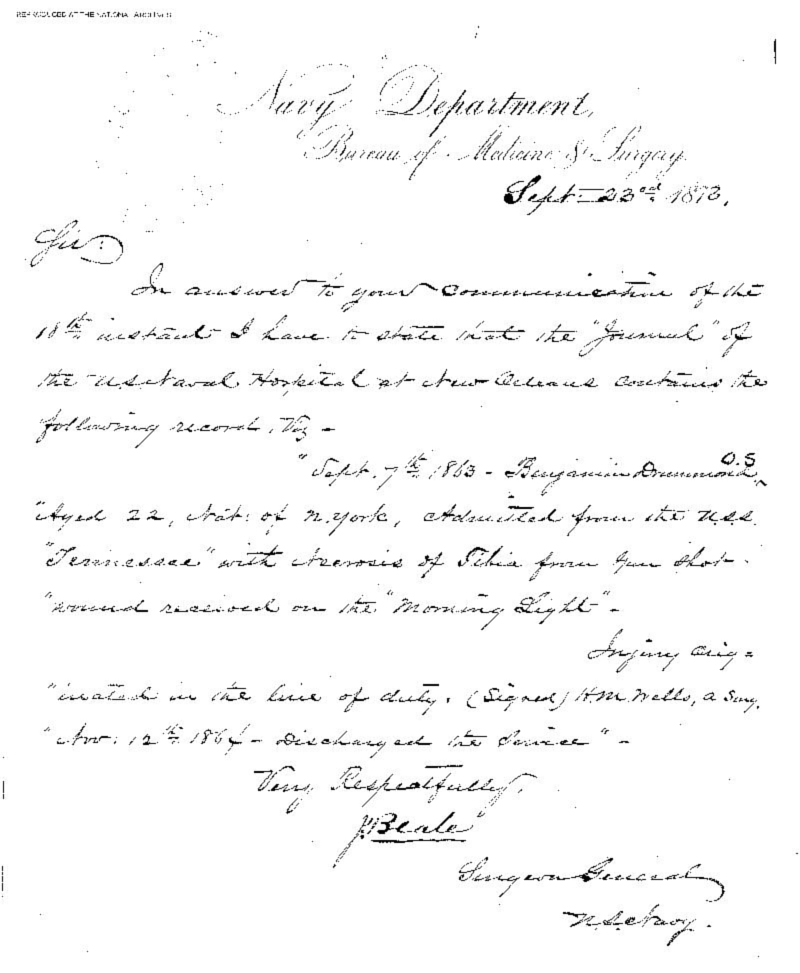 REPRODUCED AT THE NATIONAL ARCHIVES
Navy Department,
Bureau of Medicine & Surgery
Sept. 23rd 1873.
Sir:
In answer to your communication of the
18th instant I have to state that the "Journal" of
the U.S. Naval Hospital at New Orleans contains the
following record, Viz -
"Sept. 7th 1863 - Benjamin Drummond O.S.
"Aged 22, Nat: of N. York, Admitted from the U.S.S.
"Tennessee" with Necrosis of Tibia from Gun Shot-
"wound received on the "Morning Light" -
Injury orig=
"inated in the line of duty. (Signed) H M Wells, a Surg.
"Nov: 12th 1864 - Discharged the Service" -
Very Respectfully,
J. Beale
Surgeon General
U.S. Navy.